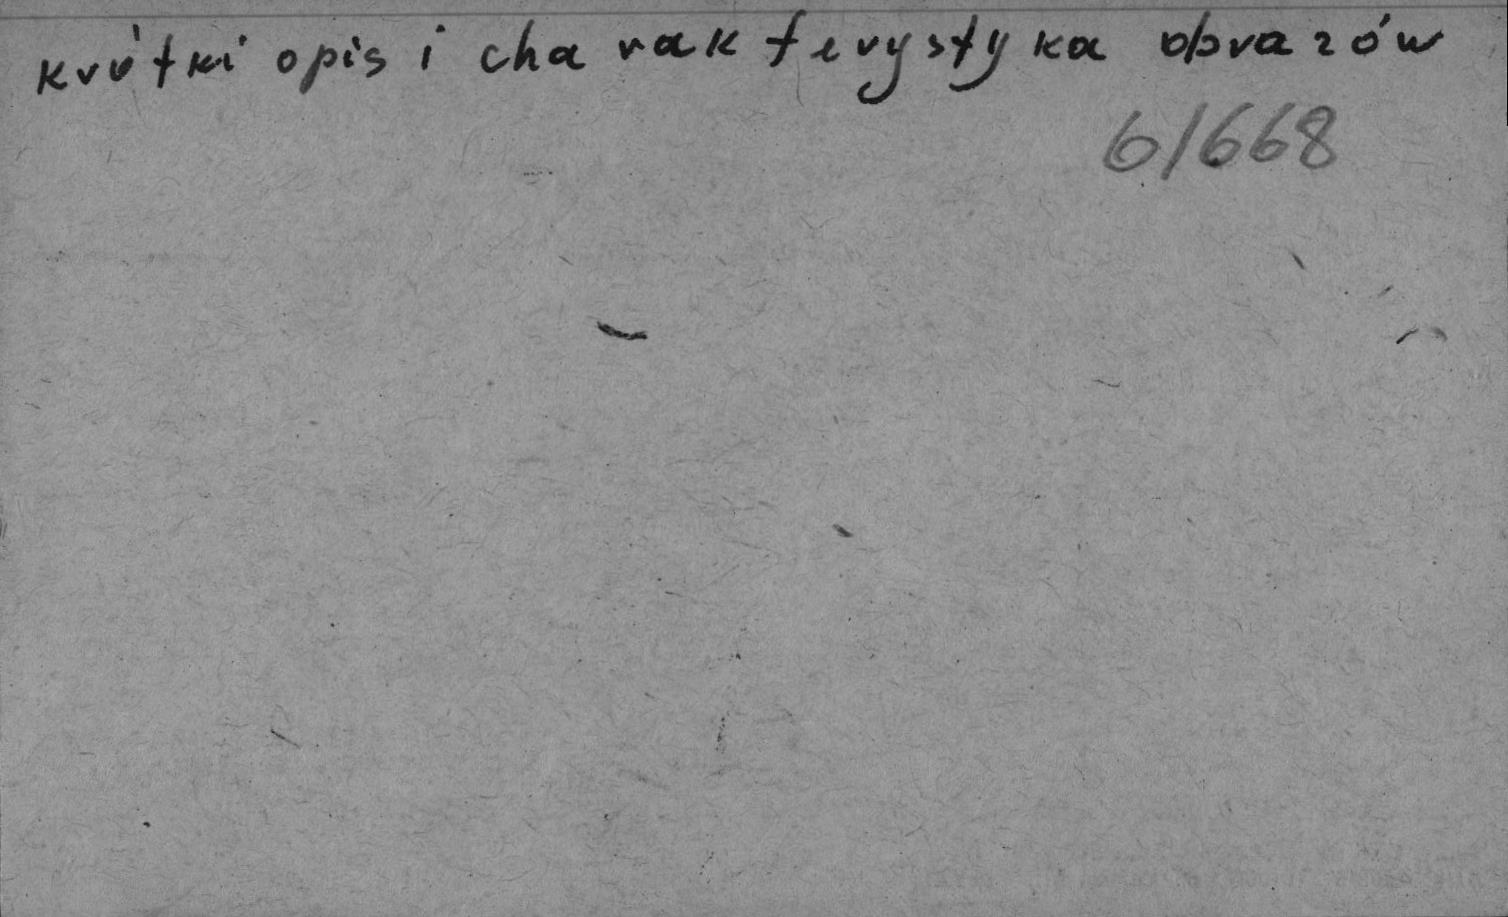 krótki opis i charakterystyka obrazów
6/668